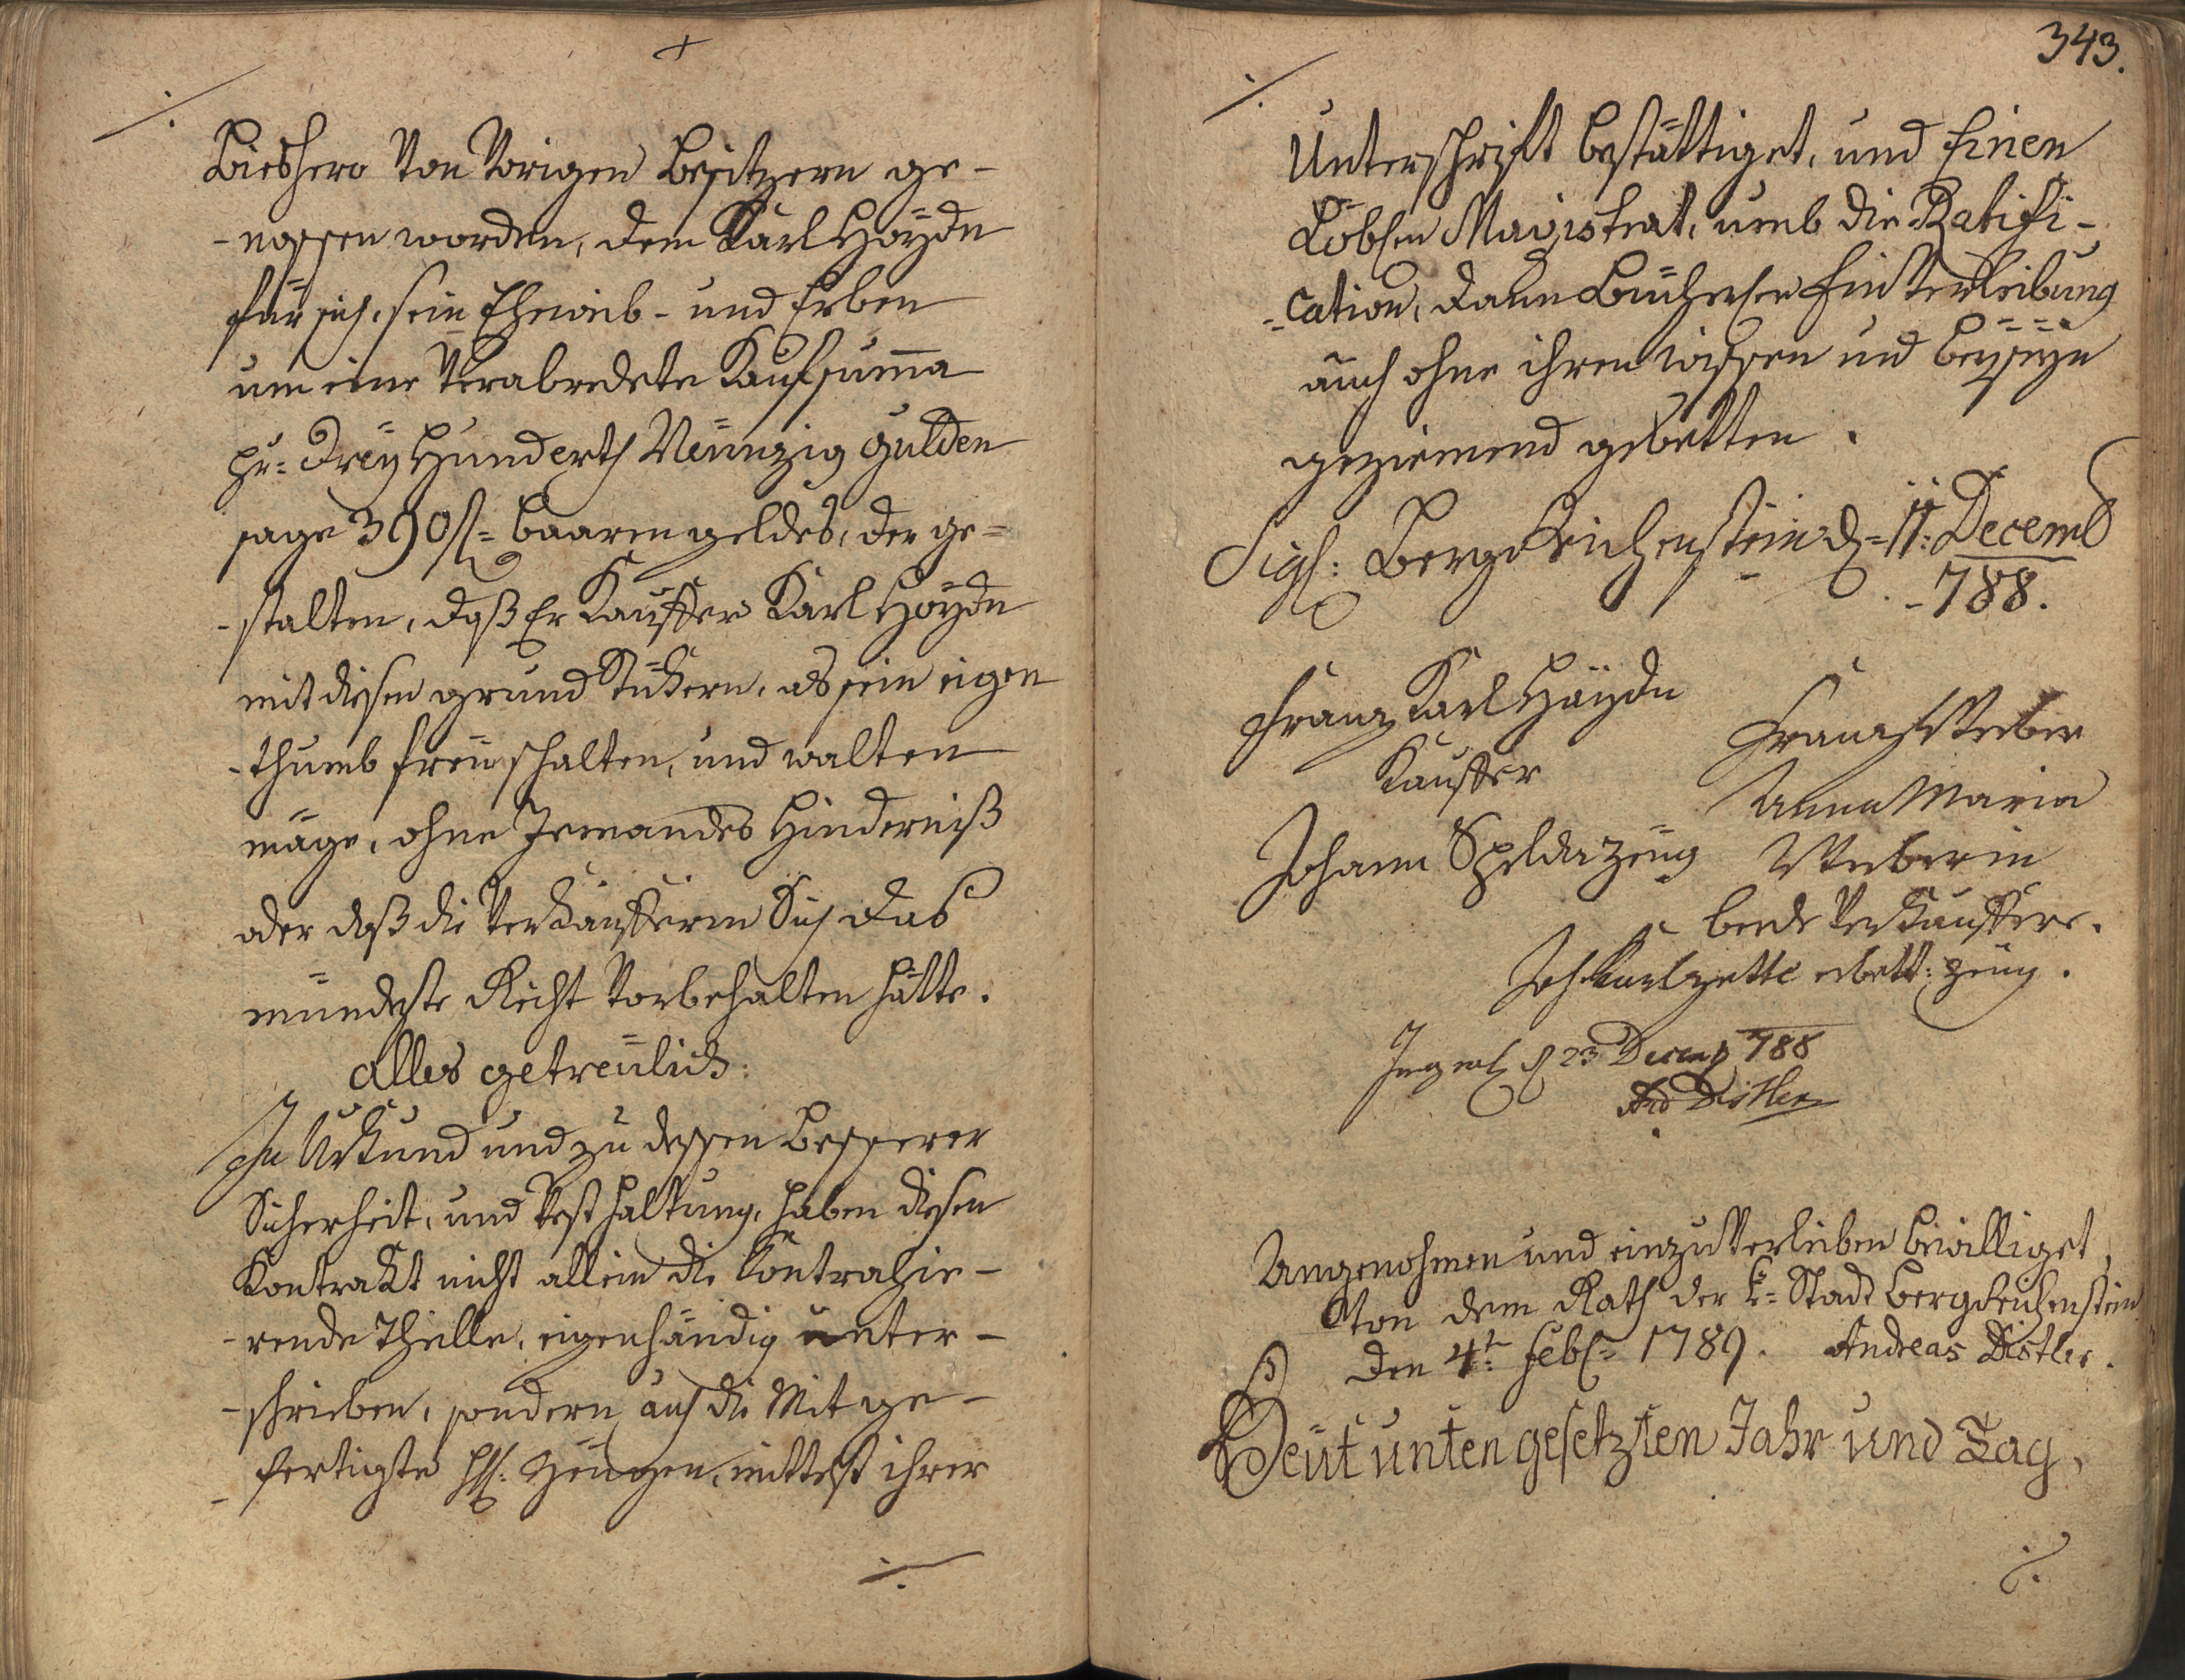 Bieshero von vorigen Besitzern ge-
-nossen worden, dem Karl Höydn
für sich, sein Eheweib- und Erben
um eine verabredete Kaufsuma
pr= Dreÿ Hunderth Neünzig gulden
sage 390 fl= baaren geldes, der ge=
-stalten, daß Er Kauffer Karl Höydn
mit diesen grund Stückern, als sein eigen
-thumb freÿ schalten, und walten
mäge, ohne Jemandes Hinderniß
oder daß die Verkäuffern Sich das
mündeste Recht vorbehalten hätte.
alles getreülich:
In Urkund und zu dessen Besserer
Sicherheit, und Vesthaltung, haben diesen
Kontrakt nicht allein die Contrahie-
-rende Theille, eigenhändig unter-
-schrieben, sondern auch die Mit ge-
-fertigte H: Zeügen, mittelst ihrer
./.
343.
./.
Unterschrift bestättiget, und Einen
Löblen Magistrat, umb die Ratifi-
=cation, dann Bücherlen Einverleibung
auch ohne ihren wissen und beyseyn
geziemend gebetten.
Sigl: Bergreichenstein d= 11: Decemb
-788.
Franz Karl Häydn
Kauffer
Franz Weber
Anna Maria
Weberin
beede Verkauffere.
Johann Spelda Zeüg
erbett: zeüg.
23 Decemb 788
And Distler
Angenohmen und einzuverleiben bewilliget,
Von dem Rath der k= Stadt Bergreichenstein
den 4t: feb= 1789. Andreas Distler.
Heüt unten gesetzten Jahr und Tag,
./.